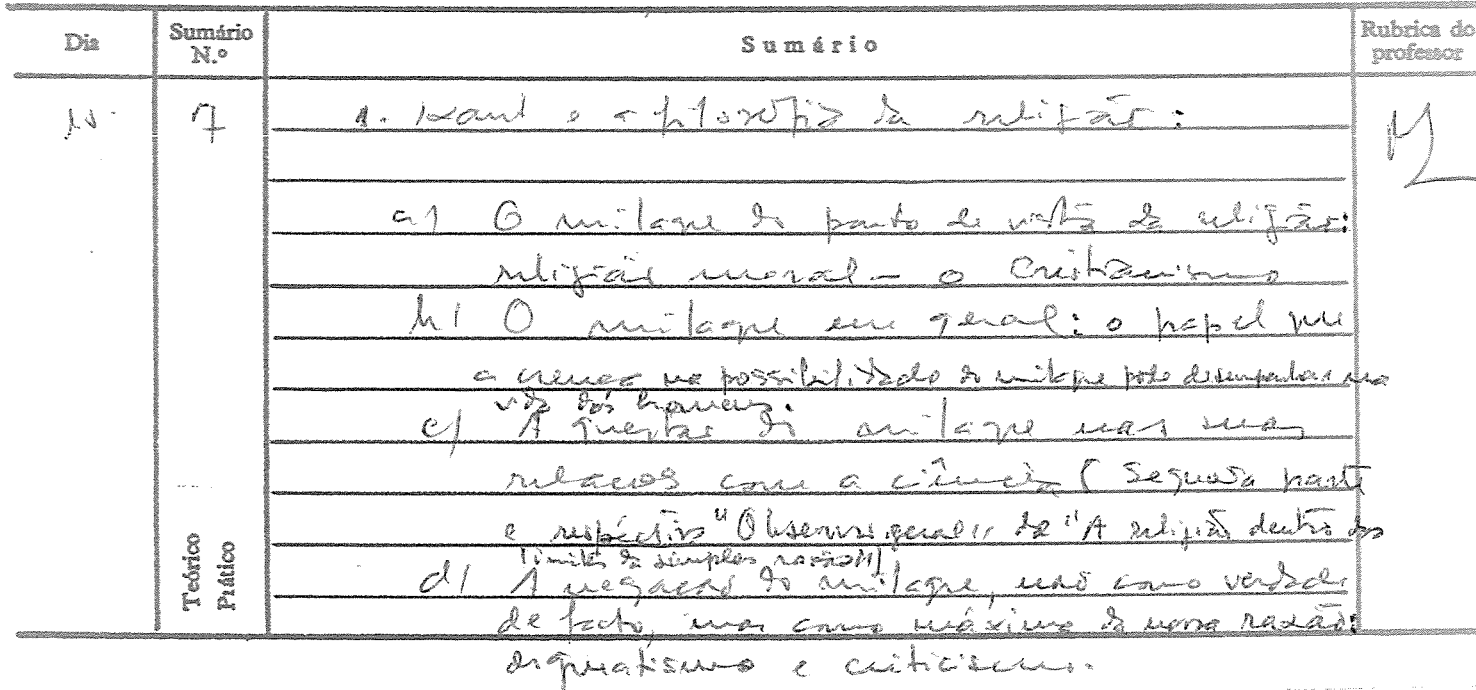 Dia Sumário N.º Sumário Rubrica do professor
7 1. Kant e a filosofia da religião:
a) O milagre do ponto de vista da religião:
religião moral - o Cristianismo
b) O milagre em geral: o papel que
a crença na possibilidade do milagre pode desempenhar na
vida dos homens.
c) A questão do milagre nas suas
relações com a ciência (Segunda parte
e respectiva "Observ. geral" de "A religião dentro dos
limites da simples razão")
d) A negação do milagre, não como verdade
de facto, mas como máxima da nossa razão:
dogmatismo e criticismo.
Teórico
Prático